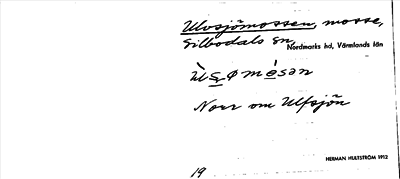 Ulvsjömossen, mosse,
Silbodals sn, Nordmarks hd, Värmlands län
Norr om Ulfsjön
HERMAN HULTSTRÖM 1912
19